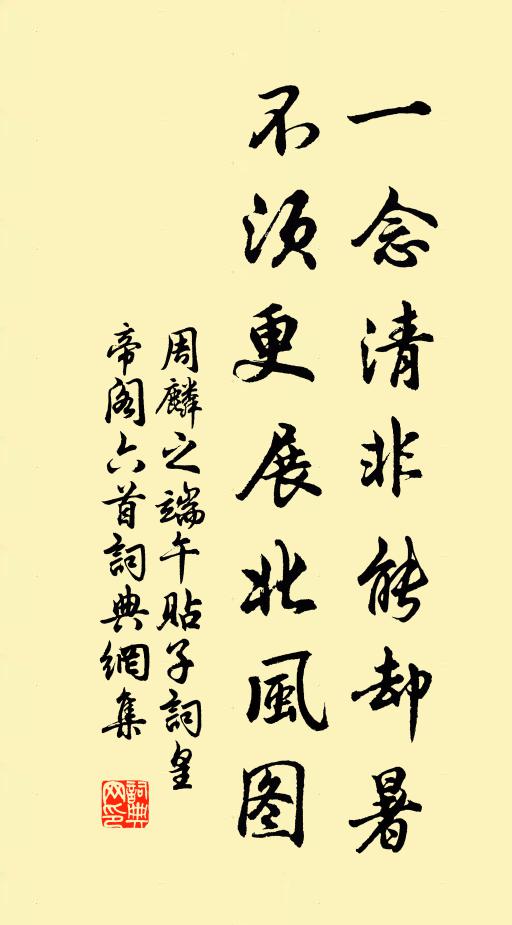 一念清非能却暑
不须更展北風图
周麟之端午貼子詞皇
帝阁六首詞典網集
詞典
网印